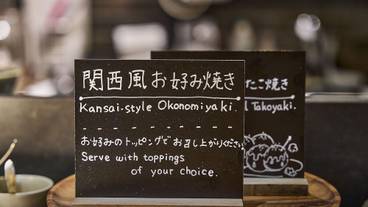 関西風お好み焼き
Kansai-style Okonomiyaki.
お好みのトッピングでお召し上がりください。
Serve with toppings
of your choice.
たこ焼き
Takoyaki.